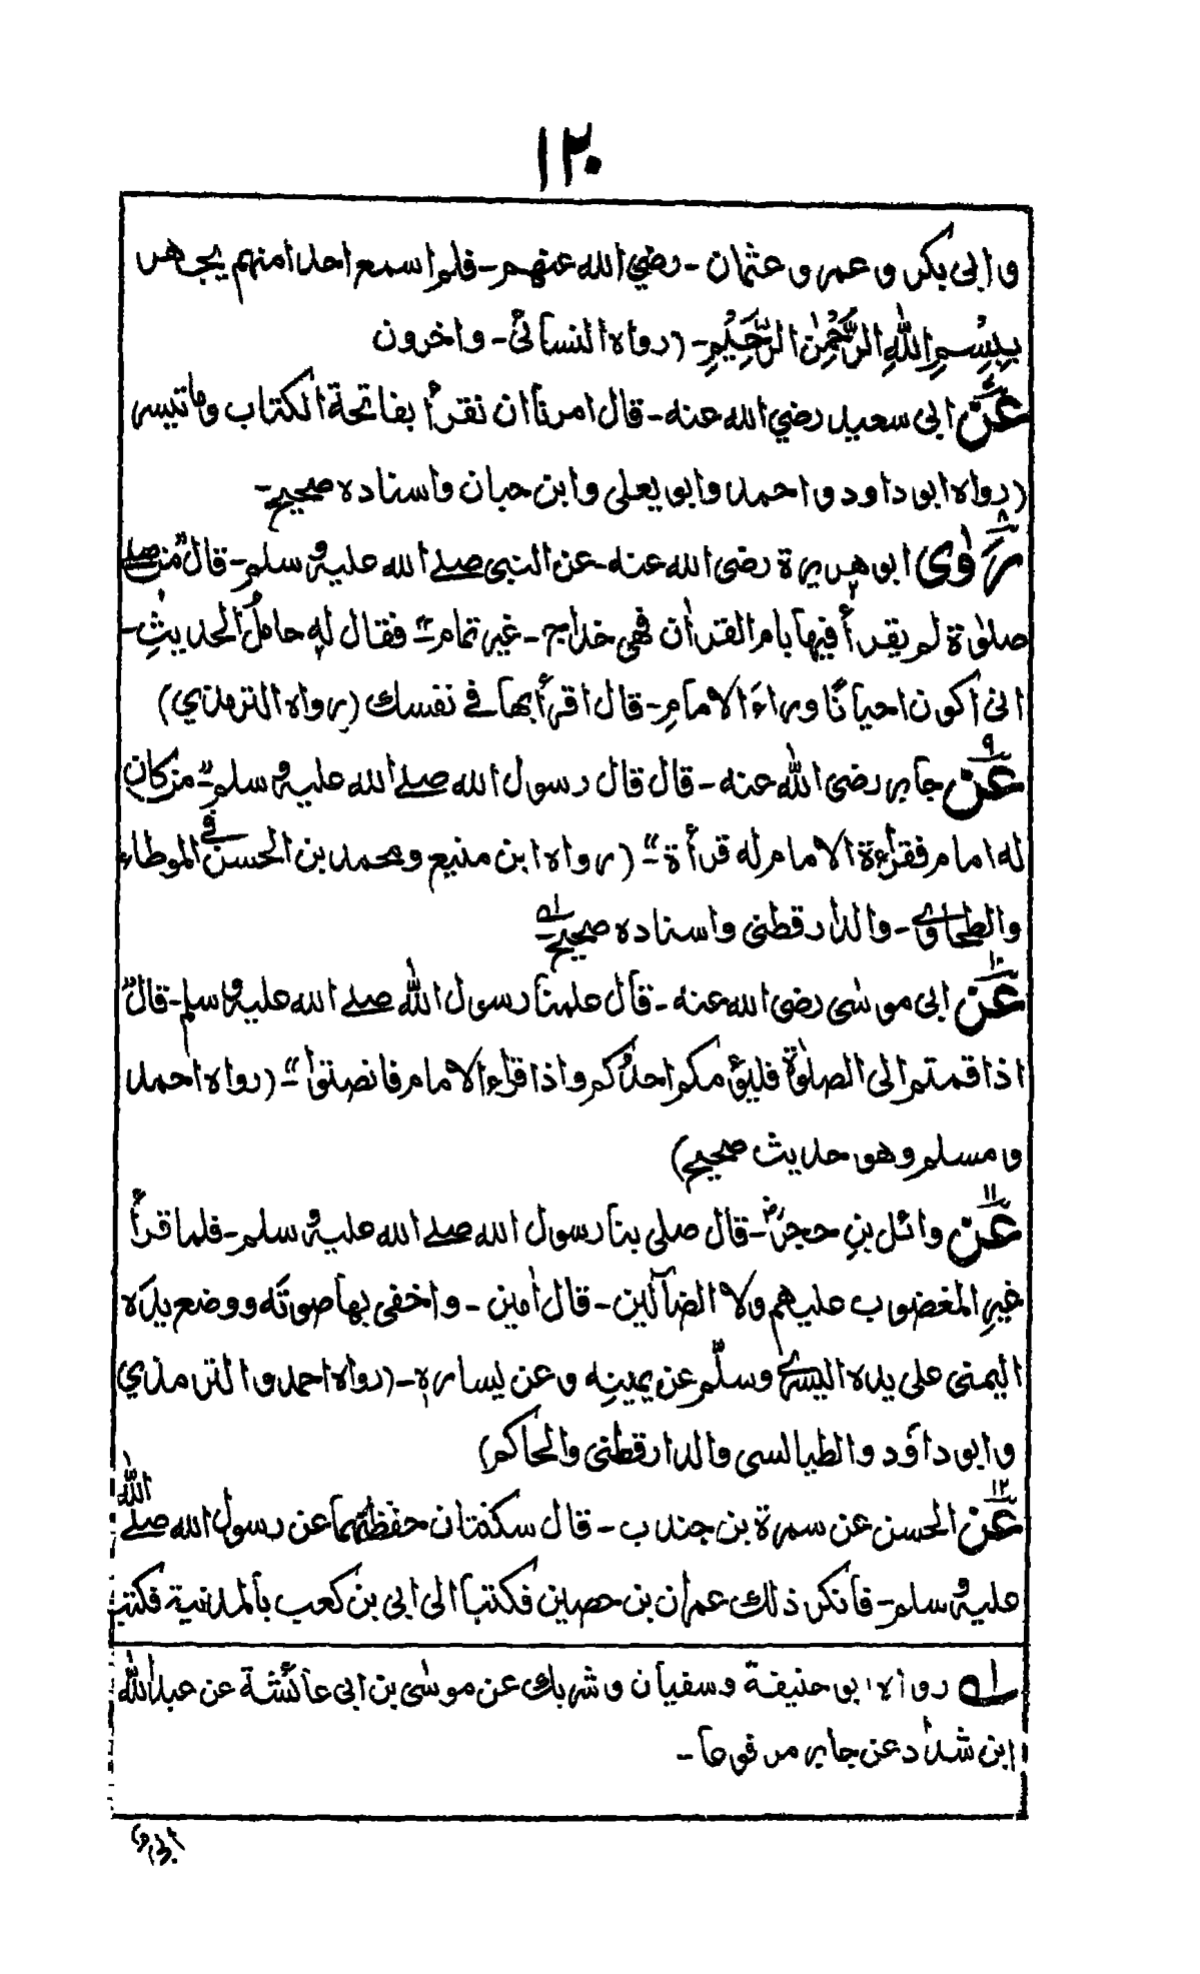 ١٢٠
وابى بكر وعمر وعثمان - رضي الله عنهم - فلم اسمع احدا منهم يجهر
بِبِسْمِ اللهِ الرَّحْمٰنِ الرَّحِيْمِ - (رواه النسائى - واخرون
عن ٧ ابى سعيد رضي الله عنه - قال امرنا ان نقرأ بفاتحة الكتاب وما تيسر
(رواه ابو داود واحمد وابو يعلى وابن حبان واسناده صحيح -
روٰى ٨ ابو هريرة رضى الله عنه - عن النبى صلے الله عليه وسلم - قال "من صلے
صلوٰة لم يقرأ فيها بام القرأن فهى خداج - غير تمام" فقال له حاملُ الحديثِ -
انى اكون احيانًا وراءَ الامامِ - قال اقرأ بها فے نفسك (رواه الترمذي)
عن ٩ جابر رضى الله عنه - قال قال رسول الله صلے الله عليه وسلم "من كان
له امام فقراءة الامام له قرأة" (رواه ابن منيع ومحمد بن الحسن فى الموطاء
والطحاوى - والدارقطنى واسناده صحيح - ١ـه
عن ١٠ ابى موسٰى رضى الله عنه - قال علمنا رسول الله صلے الله عليه وسلم - قال "
اذا قمتم الى الصلوٰة فليؤمكم احدُكم واذا قرأء الامام فانصتوا" (رواه احمد
ومسلم وهو حديث صحيح)
عن ١١ وائل بنِ حجرؓ - قال صلى بنا رسول الله صلے الله عليه وسلم - فلما قرأ
غيرِ المغضوب عليهم ولا الضآلين - قال أمين - واخفى بها صوتَه ووضع يدَه
اليمنى على يده اليسرٰى وسلّم عن يمينِه وعن يساره - (رواه احمد والترمذي
وابو داؤد والطيالسى والدارقطنى والحاكم)
عن ١٢ الحسن عن سمرة بن جندب - قال سكتتان حفظتهما عن رسول الله صلے الله
عليه وسلم - فانكر ذلك عمران بن حصين فكتبا الى ابى بن كعب بالمدينة فكتب
١ـه رواه ابو حنيفة وسفيان وشريك عن موسٰى بن ابى عائشة عن عبدالله
ابن شداد عن جابر مرفوعا -